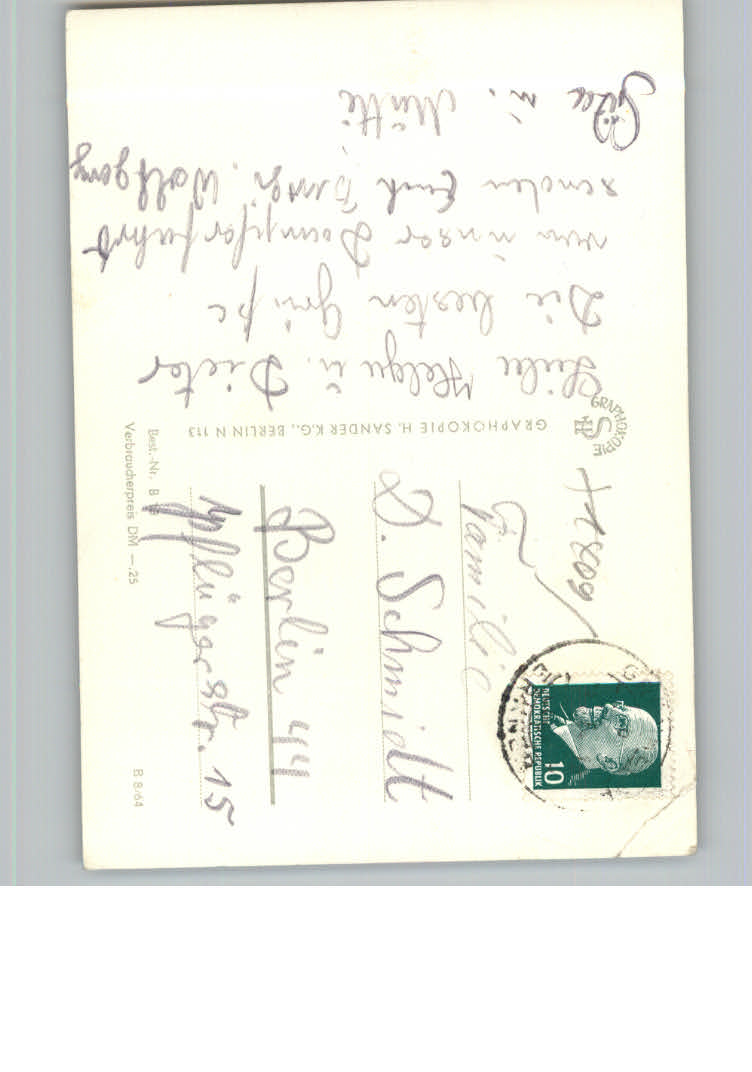 Liebe Helga ü. Dieter
Die besten Grüße
von ünser Dampferfahrt
senden Euch Wolfgang
ü. Mütti
GRAPHOKOPIE H. SANDER K.G., BERLIN N 113
GRAPHOKOPIE
HS
Familie
D. Schmidt
Berlin 44
Pflügerstr. 15
Best.-Nr. B
Verbraucherpreis DM —,25
B 8/64
DEUTSCHE
DEMOKRATISCHE REPUBLIK
10